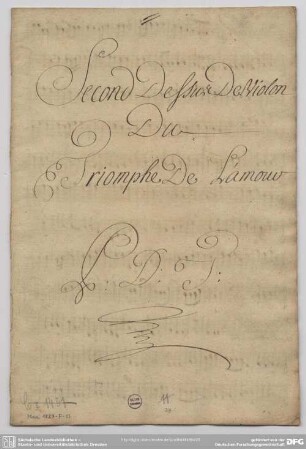 Second Dessus De Violon
Du
Triomphe De Lamour
D. T:
11
Mus. 1827-F-11
Sächsische Landesbibliothek –
Staats- und Universitätsbibliothek Dresden
gefördert von der
Deutschen Forschungsgemeinschaft
DFG